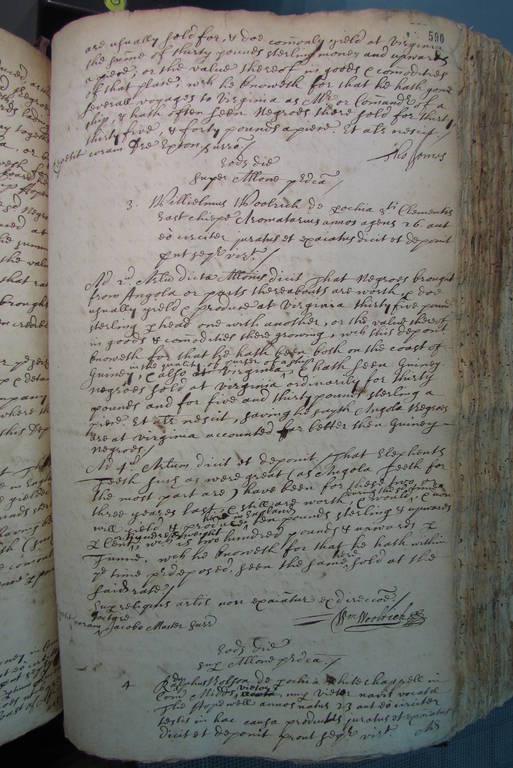 590
are usually sold for, & doe comonly yeild at Virginia
the summe of thirty pounds sterling money and upwards
a peece, or the value thereof in goods & comodities
of that place, wch he knoweth for that he hath gone
severall voyages to Virginia as Mr or Comander of a
ship, & hath often seen Negroes there sold for thirty
thirty five, & forty pounds a peece. Et als nescit
Tho: Jones
Eod die
Super Allone pdca
3. Willielmus Woolrich de pochia Sti Clementis
East cheape Aromatarius annos agens 26. aut
eo circiter juratus et examinatus dicit et deponit
put seqr vizt
Ad 2 Arlum dicta Allonis dicit That Negroes brought
from Angola or parts thereabouts are worth, & doe
usually yeild & produce at Virginia thirty five pounds
sterling p head one with another, or the value thereof
in goods & comodities there growing, wch this depont
knoweth for that he hath been both on the coast of
Guiney, & also at Virginia, & hath seen Guiney
in the quality of purser of a ship
negroes sold at Virginia ordinarily for thirty
pounds and for five and thirty pounds sterling a
peece. Et als nescit, saving he sayth Angola Negroes
are at Virginia accounted far better then Guiney
negroes
Ad 4 Arlum dicit et deponit, That Elephants
Teeth such as were great (as Angola teeth for
the most part are) have been for these two or
three yeares last, & still are worth
will yeild & produce pounds sterling & upwards
p Centum hundred pounds & upwards p
Tunne, wch he knoweth for that he hath within
ye time predeposed, seen the same sold at the
said rate
Sup reliquis artlis non examinatur ex direccone
Jacobo Master Surr
Wm Woolrich
Eod die
Sup Allone pdca
4
Johns de pochia White chappell in
Com Midds navis vocata
The Hopewell annos natus 23 aut eo circiter
testis in hac causa productus juratus et examinatus
dicit et deponit prout seqr vizt